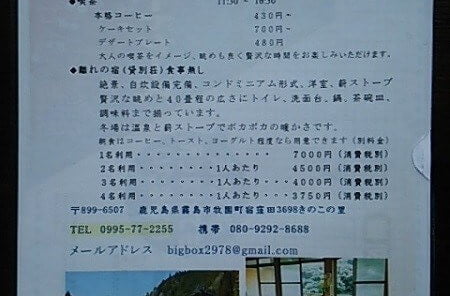 ●喫茶 11:30 ~ 16:30
本格コーヒー 430円~
ケーキセット 700円~
デザートプレート 480円
大人の喫茶をイメージ、眺めも良く贅沢な時間をお楽しみいただけます。
●離れの宿(貸別荘)食事無し
絶景、自炊設備完備、コンドミニアム形式、洋室、薪ストーブ
贅沢な眺めと40畳程の広さにトイレ、洗面台、鍋、茶碗皿、
調味料まで揃っています。
冬場は温泉と薪ストーブでポカポカの暖かさです。
朝食はコーヒー、トースト、ヨーグルト程度なら用意できます(別料金)
1名利用・・・・・・・・・・・・・・7000円(消費税別)
2名利用・・・・・・・・1人あたり 4500円(消費税別)
3名利用・・・・・・・・1人あたり 4000円(消費税別)
4名利用・・・・・・・・1人あたり 3750円(消費税別)
〒899-6507 鹿児島県霧島市牧園町宿窪田3698きのこの里
TEL 0995-77-2255 携帯 080-9292-8688
メールアドレス bigbox2978@gmail.com